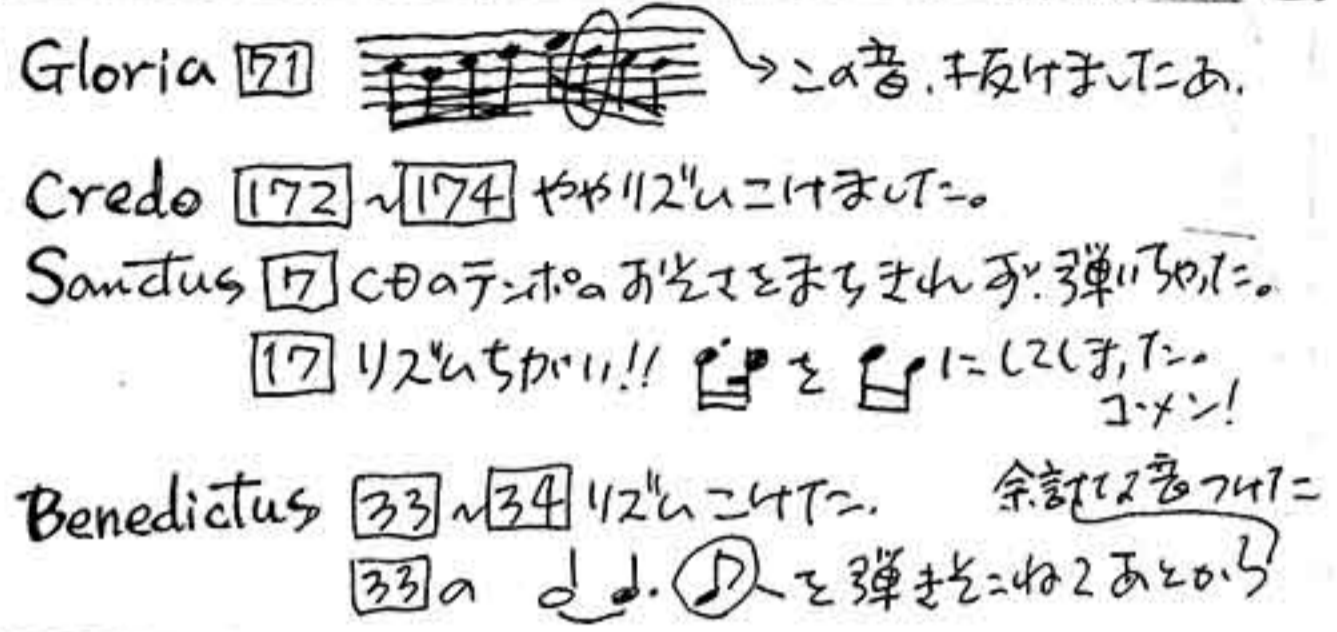 Gloria 71 この音、抜けましたあ.
Credo 172~174 ややリズムこけました。
Sanctus 7 CDのテンポのおそさをまちきれず、弾いちゃった。
17 リズムちがい!! を にしてしまった。
ゴメン!
Benedictus 33~34 リズムこけた. 余計な音つけた
33の ♪ を弾きそこねてあとから